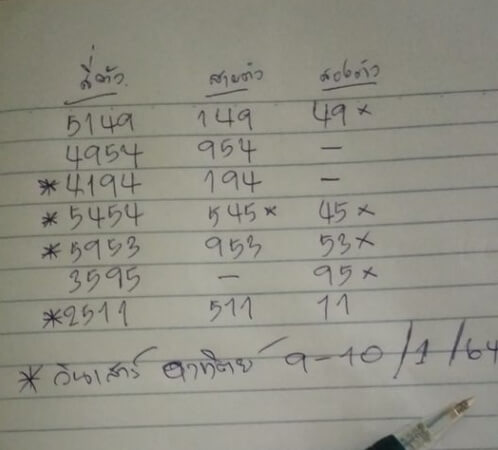 สี่ตัว สามตัว สองตัว
5149 149 49 ×
4954 954 –
* 4194 194 –
* 5454 545 × 45 ×
* 5953 953 53 ×
3595 – 95 ×
* 2511 511 11
* วันเสาร์ อาทิตย์ 9-10/1/64